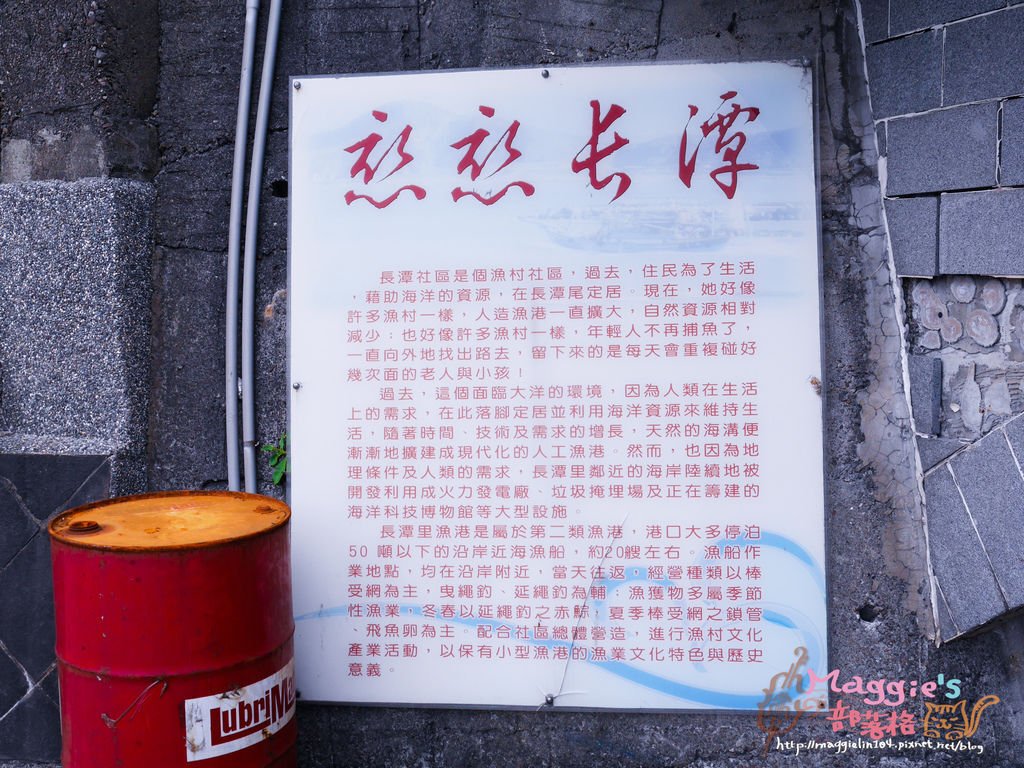 戀戀长潭
長潭社區是個漁村社區，過去，住民為了生活
，藉助海洋的資源，在長潭尾定居。現在，她好像
許多漁村一樣，人造漁港一直擴大，自然資源相對
減少；也好像許多漁村一樣，年輕人不再捕魚了，
一直向外地找出路去，留下來的是每天會重複碰好
幾次面的老人與小孩！
過去，這個面臨大洋的環境，因為人類在生活
上的需求，在此落腳定居並利用海洋資源來維持生
活，隨著時間、技術及需求的增長，天然的海溝便
漸漸地擴建成現代化的人工漁港。然而，也因為地
理條件及人類的需求，長潭里鄰近的海岸陸續地被
開發利用成火力發電廠、垃圾掩埋場及正在籌建的
海洋科技博物館等大型設施。
長潭里漁港是屬於第二類漁港，港口大多停泊
50 噸以下的沿岸近海漁船，約20艘左右。漁船作
業地點，均在沿岸附近，當天往返，經營種類以棒
受網為主，曳繩釣、延繩釣為輔；漁獲物多屬季節
性漁業，冬春以延繩釣之赤鯮，夏季棒受網之鎖管
、飛魚卵為主。配合社區總體營造，進行漁村文化
產業活動，以保有小型漁港的漁業文化特色與歷史
意義。
LubriMa
Maggie's
部落格
http://maggielin104.pixnet.net/blog